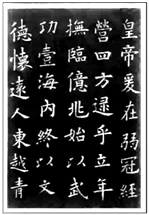 皇帝爰在弱冠経
營四方逮乎立年
撫臨億兆始以武
功壹海內終以文
德懷遠人東越青